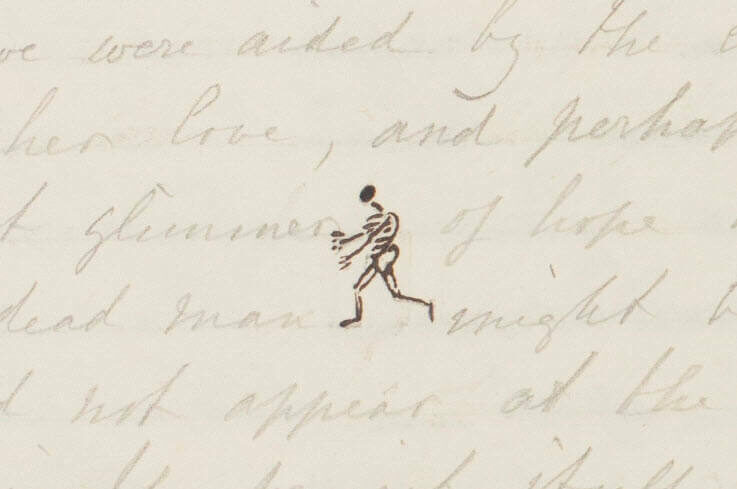 were aided by the
her love, and perhap
glimmer of hope
dead man might b
not appear at the